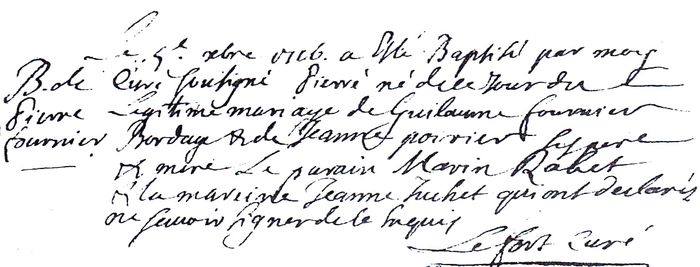 Le 5e xbre 1716. a Esté Baptisé par moy
B. de Curé soubsigné Pierre né de le Jour du
Pierre Legitime mariage de Guilaume fournier
fournier Bordage & de Jeanne poirrier Ses pere
& mere Le parain Marin Rabet
& la mareine Jeanne Juchet qui ont declarés
ne scavoir signer de ce enquis
Le fort Curé